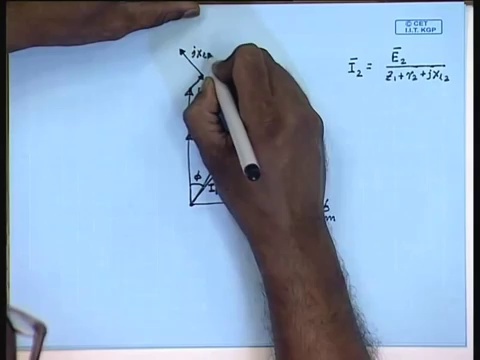 © CET
I.I.T. KGP
Ī₂ = Ē₂ / z₁ + r₂ + jx_{l2}
jx
φ
I
m